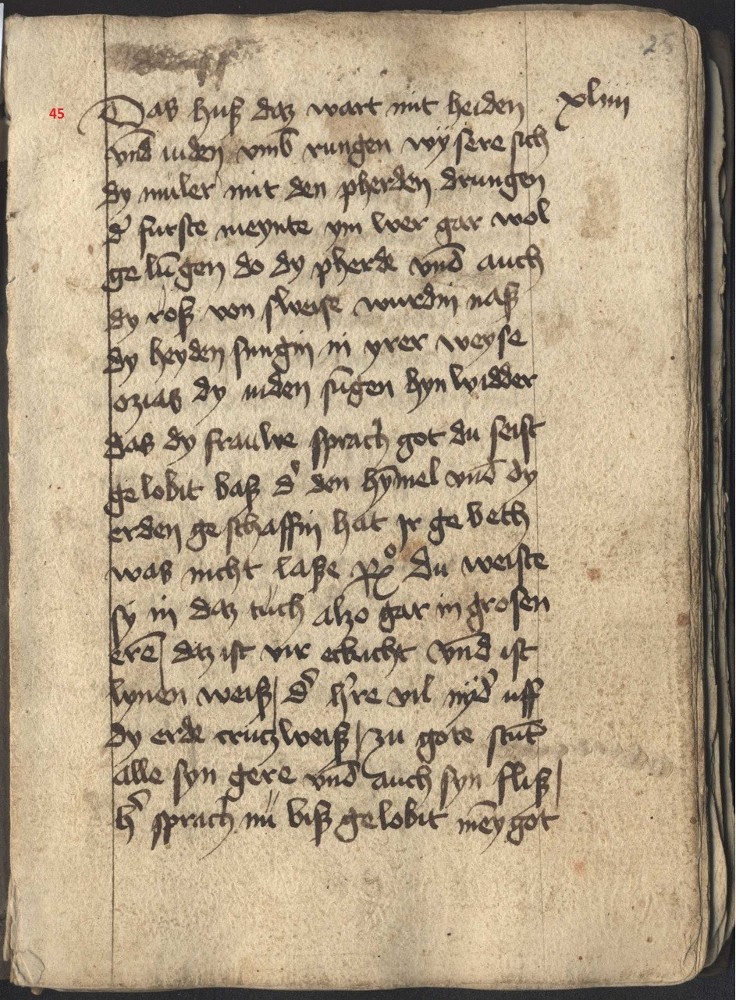 25
45 Das huß daz wart mit heiden xliiii
vnd iuden vmb rungen wy sere sich
dy muler mit den pherden drungen
d' furste meynte ym wer gar wol
ge lūgen do dy pherde vnd auch
dy roß von sweise wurdin naß
dy heyden sungin in yrer weyse
ozias dy iuden sūgen hyn widder
das dy frauwe sprach got du seist
ge lobit baß d' den hȳmel vnd dy
erden ge schaffin hat Ir ge beth
was nicht laße du weiste
sy in daz tuch alzo gar in grosen
erē daz ist vir eckicht vnd ist
lynen weiß / d' h're vil nyd' uff
dy erde crutzweiß / zu gote stūt
alle syn gere vnd auch syn fliß /
h' sprach nu biß ge lobit mēy got